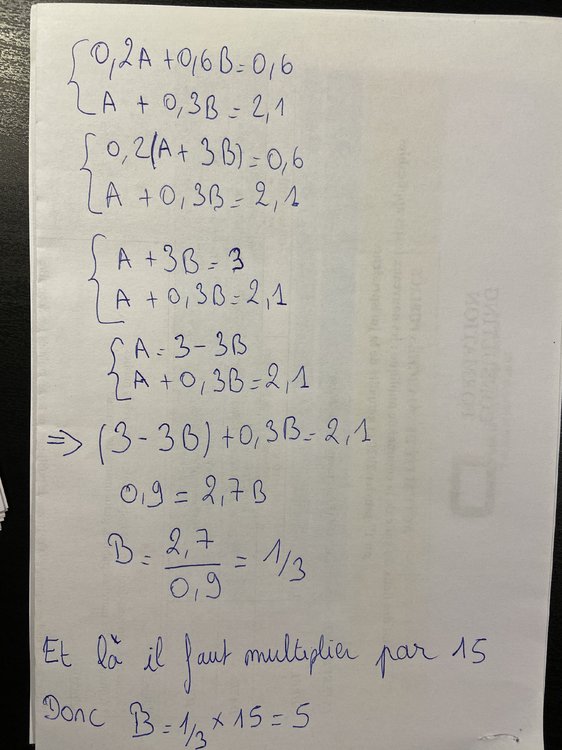 0,2A + 0,6B = 0,6
A + 0,3B = 2,1
0,2(A + 3B) = 0,6
A + 0,3B = 2,1
A + 3B = 3
A + 0,3B = 2,1
A = 3 - 3B
A + 0,3B = 2,1
=> (3 - 3B) + 0,3B = 2,1
0,9 = 2,7B
B = 2,7/0,9 = 1/3
Et là il faut multiplier par 15
Donc B = 1/3 × 15 = 5